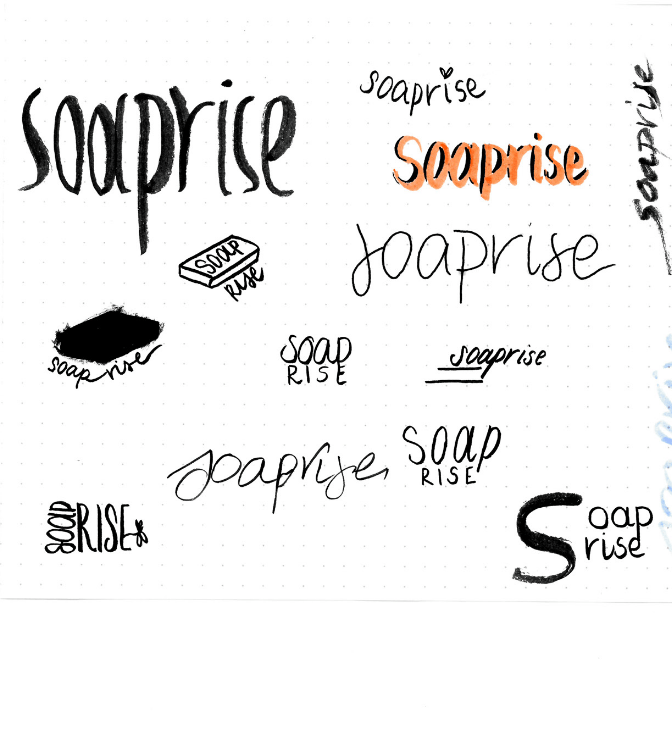 soaprise
soaprise
soaprise
soaprise
SOAP
RISE
soaprise
soaprise
SOAP
RISE
soaprise
soaprise
SOAP
RISE
SOAP RISE
Soap
rise